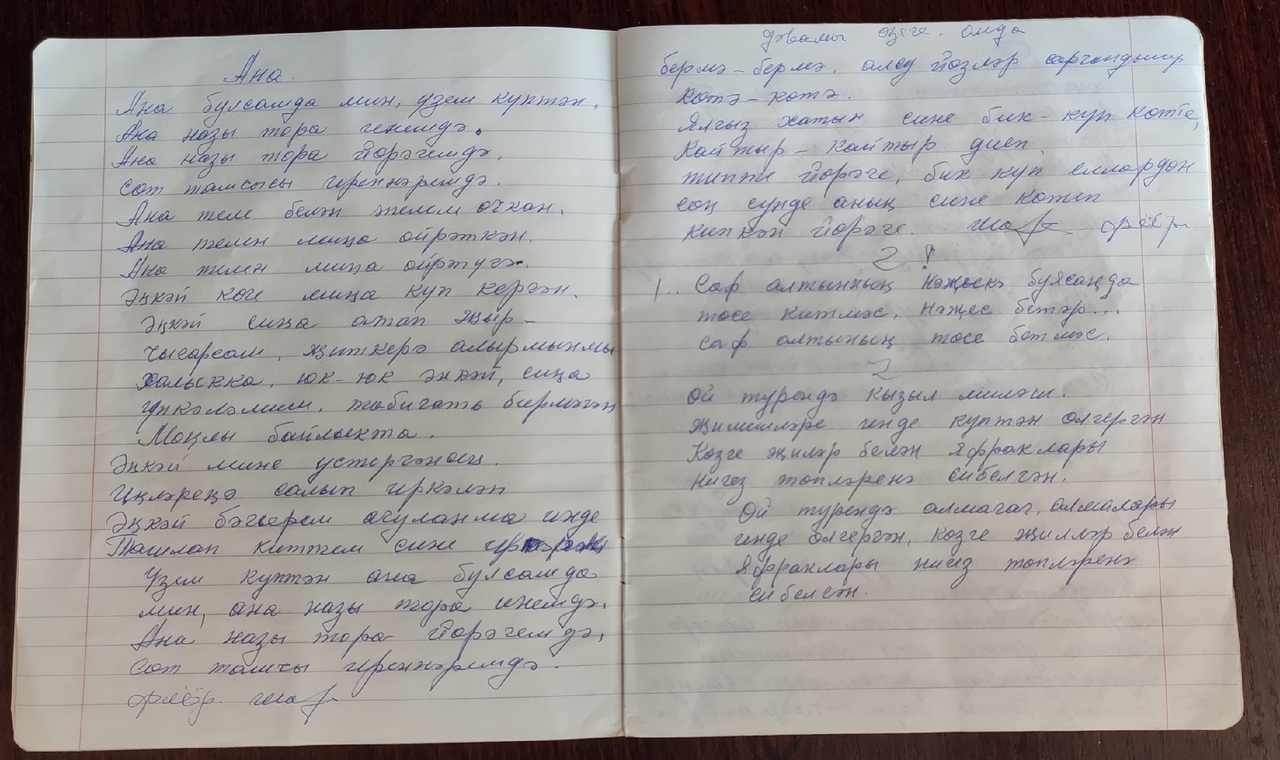 Ана.
Ана булсамда мин, үзем күптән.
Ана назы тора инемдә.
Ана назы тора йөрәгемдә.
Сөт тамсысы иреннәремдә.
Ана теле белән телем ачкан.
Ана телен миңа өйрәткән.
Ана телен миңа өйрәтүгә.
Әңкәй көче миңа күп кергән.
Әңкәй сиңа атап җыр-
чысарсам, җиткерә алырмынмы
Халыкка, юк-юк әнкәй, сиңа
үпкәләмим, табигать бирмәгән
Моңлы байлыкта.
Әңкәй мине үстергәнсең.
Иңләреңә салып иркәләп
Әңкәй бәгерем ачуланма инде
Ташлап киттем сине
Үзем күптән ана булсамда
мин, ана назы тора инемдә.
Ана назы тора йөрәгемдә,
Сөт тамчы иреннәремдә.
бермә-бермә, алсу йөзләр саргандыр
көтә-көтә.
Ялгыз хатын сине бик-күп көтте,
Кайтыр-кайтыр диеп.
типте йөрәге, бик күп еллардан
соң сүнде аның сине көтеп
кипкән йөрәге.
2
1.. Саф алтынның нәҗескә буясаңда
төсе китмәс, нәҗес бетәр...
саф алтының төсе бетмәс.
2
Өй түрендә кызыл миләш.
Җимешләре инде күптән өлгергән
Көзге җиләр белән яфраклары
Нигез төпләренә сибелгән.
Өй түрендә алмагач, алмалары
инде өлгергән, көзге җилләр белән
яфраклары нигез төпләренә
сибелсән.